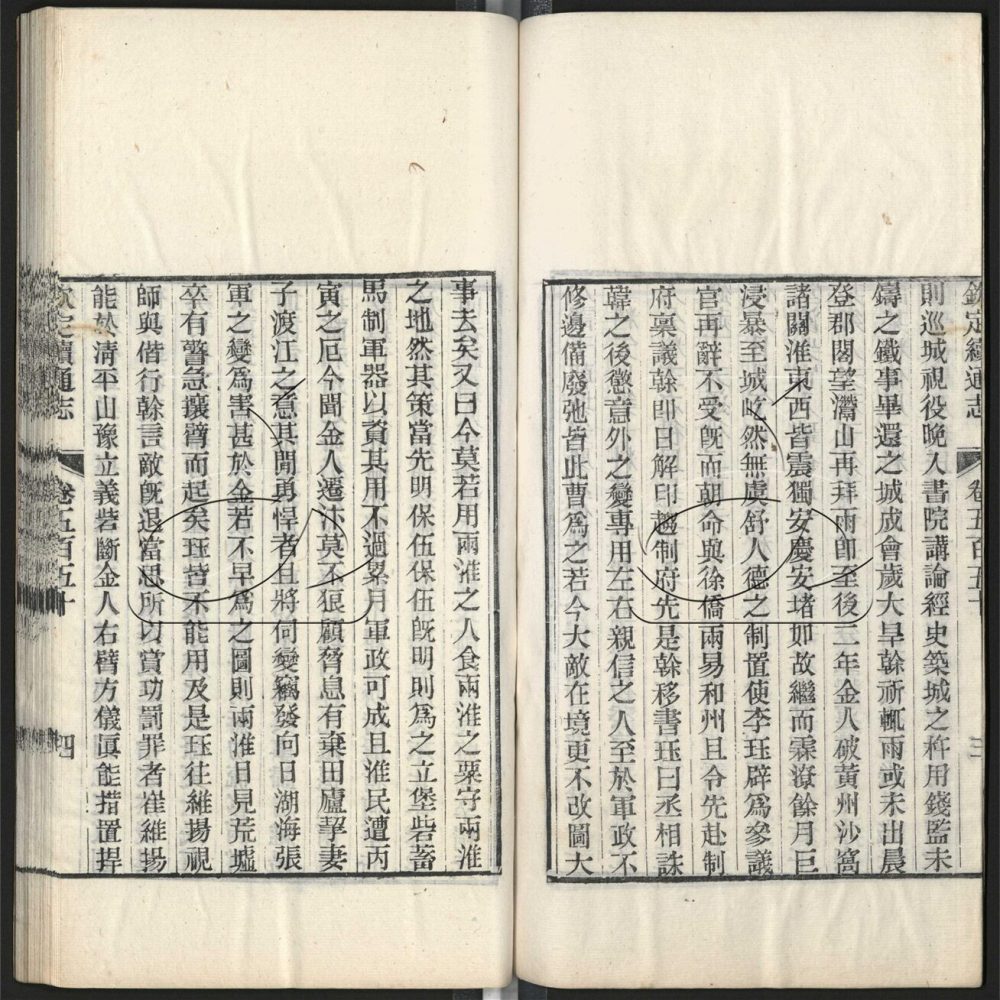 欽定續通志 卷五百五十 三
則巡城視役晚入書院講論經史築城之杵用錢監未
鑄之鐵事畢還之城成會歲大旱榦祈輒雨或未出晨
登郡閣望灊山再拜雨即至後二年金人破黃州沙窩
諸關淮東西皆震獨安慶安堵如故繼而霖潦餘月巨
浸暴至城屹然無虞舒人德之制置使李珏辟為參議
官再辭不受既而朝命與徐僑兩易和州且令先赴制
府稟議榦即日解印趨制府先是榦移書珏曰丞相誅
韓之後懲意外之變專用左右親信之人至於軍政不
修邊備廢弛皆此曹為之若今大敵在境更不改圖大
事去矣又曰今莫若用兩淮之人食兩淮之粟守兩淮
之地然其策當先明保伍保伍既明則為之立堡砦蓄
馬制軍器以資其用不過累月軍政可成且淮民遭丙
寅之厄今聞金人遷汴莫不狼顧脅息有棄田廬挈妻
子渡江之意其間勇悍者且將伺變竊發向日湖海張
軍之變為害甚於金若不早為之圖則兩淮日見荒墟
卒有警急攘臂而起矣珏皆不能用及是珏往維揚視
師與偕行榦言敵既退當思所以賞功罰罪者崔維揚
能於清平山豫立義砦斷金人右臂方儀真能措置捍
欽定續通志 卷五百五十 四